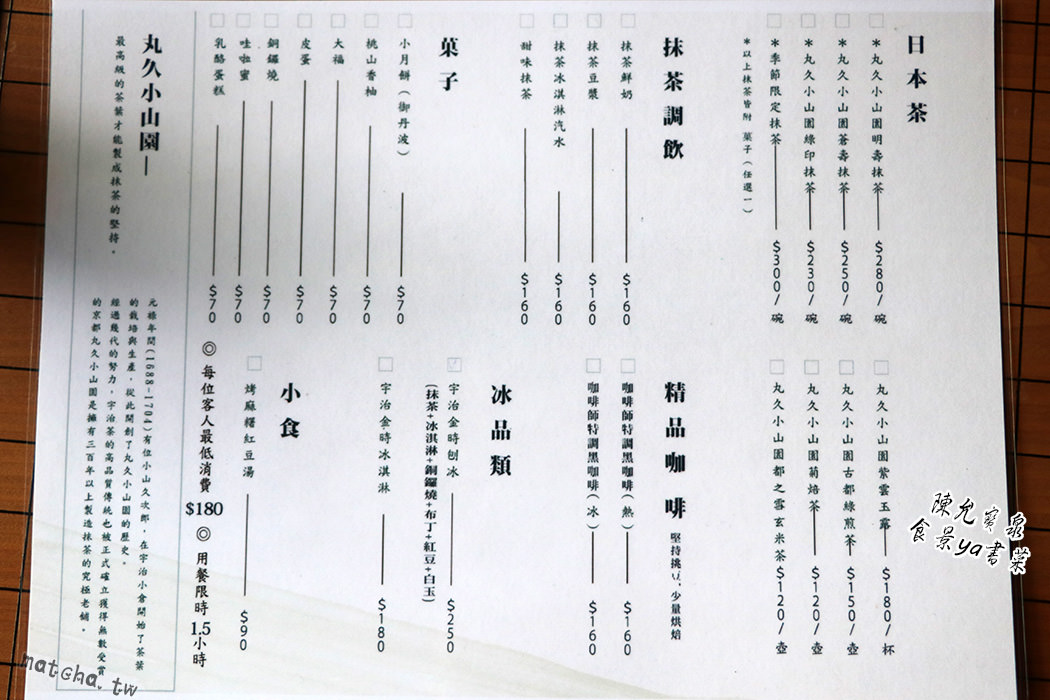 日本茶
*丸久小山園明壽抹茶 $280/碗
*丸久小山園蒼壽抹茶 $250/碗
*丸久小山園綠印抹茶 $230/碗
*季節限定抹茶 $300/碗
*以上抹茶皆附 菓子(任選一)
丸久小山園紫雲玉露 $180/杯
丸久小山園古都綠煎茶 $150/壺
丸久小山園菊焙茶 $120/壺
丸久小山園都之雪玄米茶 $120/壺
抹茶調飲
抹茶鮮奶 $160
抹茶豆漿 $160
抹茶冰淇淋汽水 $160
甜味抹茶 $160
精品咖啡 堅持挑豆,少量烘焙
咖啡師特調黑咖啡(熱) $160
咖啡師特調黑咖啡(冰) $160
菓子
小月餅(御丹波) $70
桃山香柚 $70
大福 $70
皮蛋 $70
銅鑼燒 $70
哇啦蜜 $70
乳酪蛋糕 $70
冰品類
宇治金時刨冰 $250
(抹茶+冰淇淋+銅鑼燒+布丁+紅豆+白玉)
宇治金時冰淇淋 $180
小食
烤麻糬紅豆湯 $90
◎ 每位客人最低消費 $180 ◎ 用餐限時 1.5小時
丸久小山園—
最高級的茶葉才能製成抹茶的堅持。
元祿年間(1688-1704)有位小山久次郎,在宇治小倉開始了茶葉
的栽培與生產,從此開創了丸久小山園的歷史。
經過幾代的努力,宇治茶的高品質傳統也被正式確立獲得無數受賞
的京都丸久小山園是擁有三百年以上製造抹茶的究極老舖。
陳允寶泉
食景ya書菓
matcha.tw